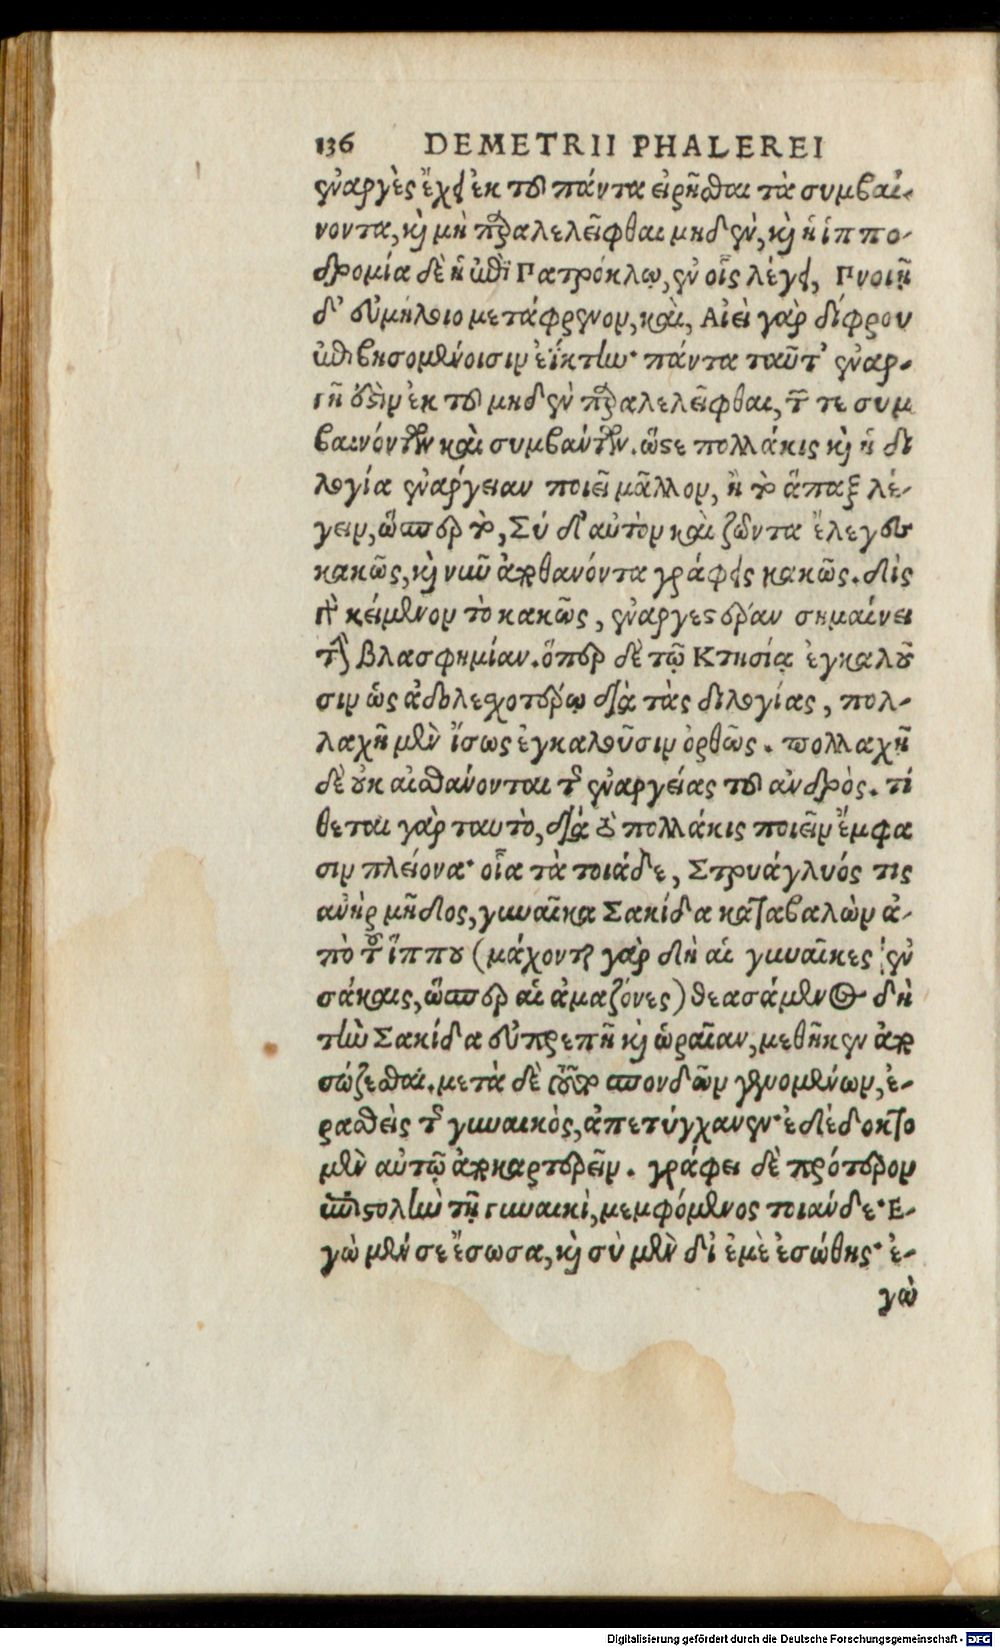 136 DEMETRII PHALEREI
ἐναργὲς ἔχει ἐκ τοῦ πάντα εἰρῆσθαι τὰ συμβαί-
νοντα, καὶ μὴ παραλελεῖφθαι μηδὲν, καὶ ἡ ἱππο-
δρομία δὲ ἡ ἐπὶ Πατρόκλῳ, ἐν οἷς λέγει, Πνοιῇ
δ' εὐμήλοιο μετάφρενον, καὶ, Αἰεὶ γὰρ δίφρου
ἐπιβησομένοισιν ἐΐκτην· πάντα ταῦτ' ἐναρ-
γῆ ὅς̀ιν ἐκ τοῦ μηδὲν παραλελεῖφθαι, τῶν τε συμ
βαινόντων καὶ συμβάντων. ὥστε πολλάκις καὶ ἡ δι
λογία ἐνάργειαν ποιεῖ μᾶλλον, ἢ τὸ ἅπαξ λέ-
γειν, ὥσπερ τὸ, Σύ δ' αὐτὸν καὶ ζῶντα ἔλεγες
κακῶς, καὶ νῦν ἀποθανόντα γράφεις κακῶς. δὶς
γὰρ κείμενον τὸ κακῶς, ἐναργεστέραν σημαίνει
τὴν βλασφημίαν. ὅπερ δὲ τῷ Κτησίᾳ ἐγκαλοῦ
σιν ὡς ἀδολεσχοτέρῳ διὰ τὰς διλογίας, πολ-
λαχῆ μὲν ἴσως ἐγκαλοῦσιν ὀρθῶς. πολλαχῇ
δὲ οὐκ αἰσθάνονται τῆς ἐναργείας τοῦ ἀνδρός. τί
θεται γὰρ ταυτὸ, διὰ τὸ πολλάκις ποιεῖν ἔμφα
σιν πλείονα· οἷα τὰ τοιάδε, Στρυάγλυός τις
ανὴρ μῆδος, γυναῖκα Σακίδα καταβαλὼν ἀ-
πὸ τοῦ ἵππου (μάχονται γὰρ δὴ αἱ γυναῖκες ἐν
σάκαις, ὥσπερ αἱ ἀμαζόνες) θεασάμενος δὴ
τὴν Σακίδα εὐπρεπῆ καὶ ὡραῖαν, μεθῆκεν ἀπο
σώζεσθαι. μετὰ δὲ τοῦτο σπονδῶν γενομένων, ἐ-
ρασθεὶς τῆς γυναικὸς, ἀπετύγχανεν· ἐδέδοκτο
μὲν αὐτῷ ἀποκαρτερεῖν. γράφει δὲ πρότερον
ἐπιστολὴν τῇ γυναικὶ, μεμφόμενος τοιάνδε· Ε-
γὼ μὲν σε ἔσωσα, καὶ σὺ μὲν δι' ἐμὲ ἐσώθης· ἐ-
γὼ
Digitalisierung gefördert durch die Deutsche Forschungsgemeinschaft - DFG